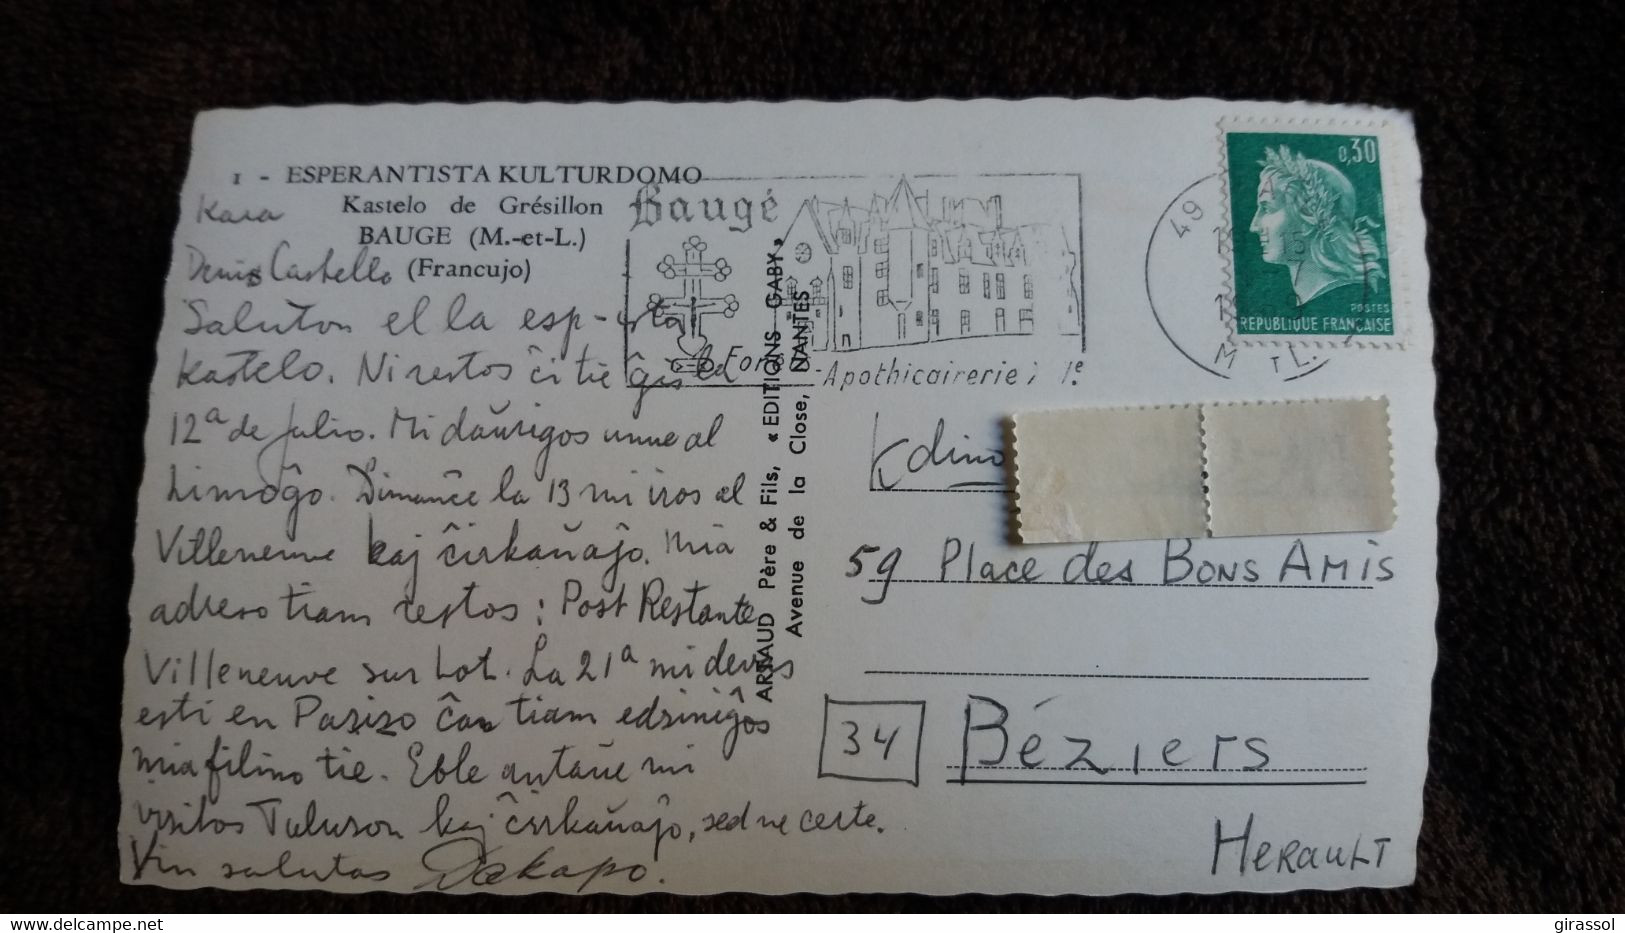 1 - ESPERANTISTA KULTURDOMO
Kastelo de Grésillon
BAUGE (M.-et-L.)
(Francujo)
Kara
Denis Castello
Saluton el la esp-ista
kastelo. Ni restos ĉi tie ĝis la
12a de Julio. Mi daŭrigos unue al
Limoĝo. Dimanĉe la 13 mi iros al
Villeneuve kaj ĉirkaŭaĵo. Mia
adreso tiam restos: Post Restante
Villeneuve sur Lot. La 21a mi devas
esti en Parizo ĉar tiam edziniĝos
mia filino tie. Eble antaŭe mi
vizitos Tuluson kaj ĉirkaŭaĵo, sed ne certe.
Vin salutas
ARTAUD Père & Fils, « EDITIONS GABY »
Avenue de la Close, NANTES
Baugé
Apothicairerie
49
15
M ET L.
0,30
POSTES
REPUBLIQUE FRANÇAISE
Kdino
59 Place des BONS AMIS
34
Béziers
HERAULT
Delcampe.net
girassol